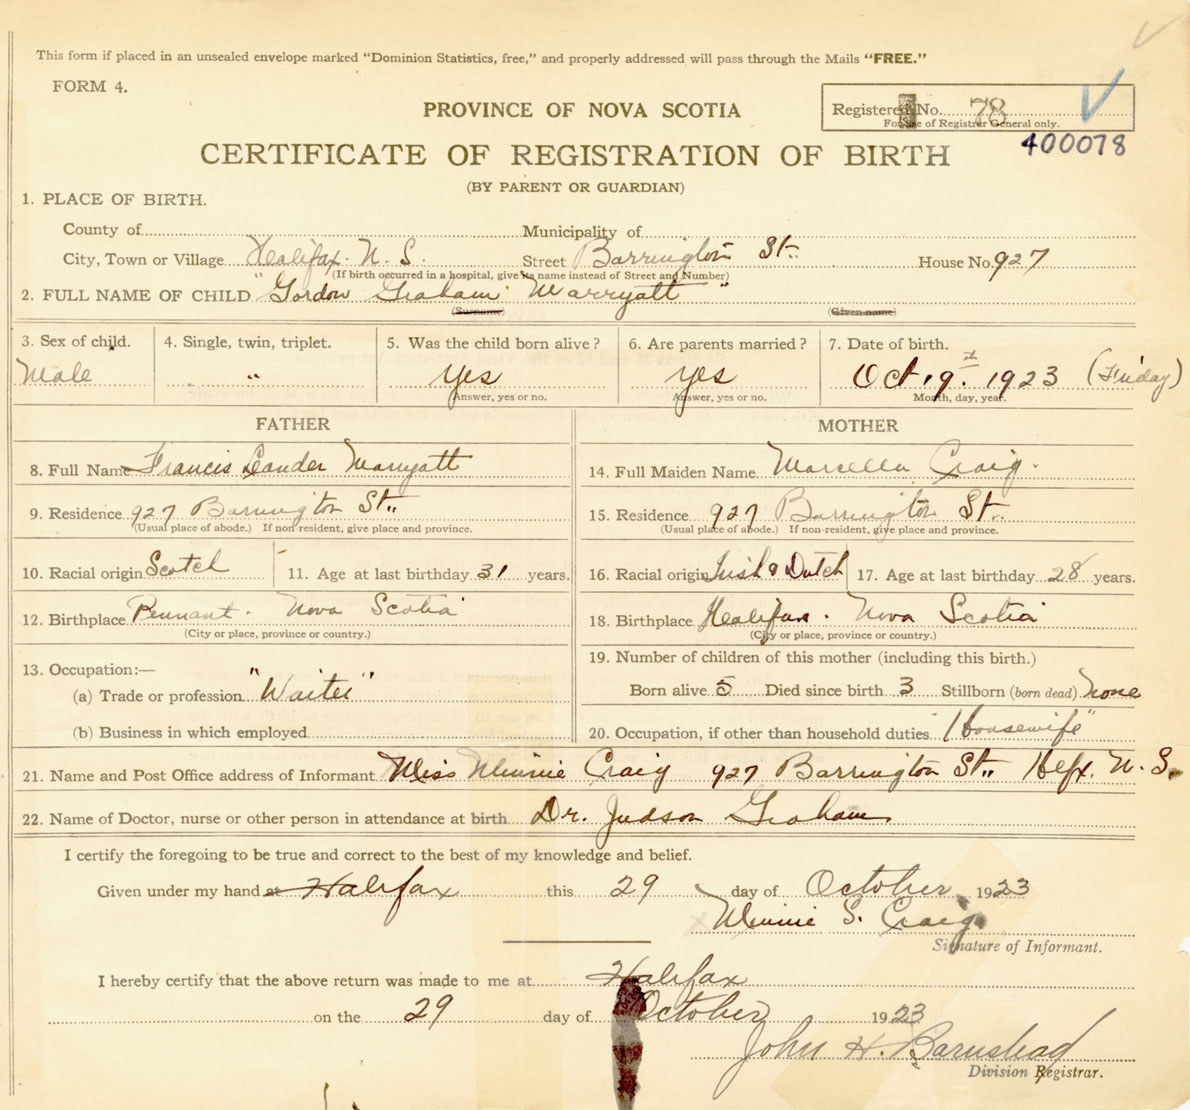 This form if placed in an unsealed envelope marked “Dominion Statistics, free,” and properly addressed will pass through the Mails “FREE.”
FORM 4.
Registered No. 78
For use of Registrar General only.
PROVINCE OF NOVA SCOTIA
400078
CERTIFICATE OF REGISTRATION OF BIRTH
(BY PARENT OR GUARDIAN)
1. PLACE OF BIRTH.
County of Municipality of
City, Town or Village Halifax. N. S. Street Barrington St. House No. 927
(If birth occurred in a hospital, give its name instead of Street and Number)
2. FULL NAME OF CHILD "Gordon Graham Marryatt"
(Surname) (Given name)
3. Sex of child. 4. Single, twin, triplet. 5. Was the child born alive? 6. Are parents married? 7. Date of birth.
Male " yes yes Oct 19th. 1923 (Friday)
Answer, yes or no. Answer, yes or no. Month, day, year.
FATHER MOTHER
8. Full Name Francis Leander Marryatt 14. Full Maiden Name Marcella Craig.
9. Residence 927 Barrington St. 15. Residence 927 Barrington St.
(Usual place of abode.) If non resident, give place and province. (Usual place of abode.) If non-resident, give place and province.
10. Racial origin Scotch 11. Age at last birthday 31 years. 16. Racial origin Irish & Dutch 17. Age at last birthday 28 years.
12. Birthplace Pennant. Nova Scotia 18. Birthplace Halifax. Nova Scotia
(City or place, province or country.) (City or place, province or country.)
13. Occupation:— 19. Number of children of this mother (including this birth.)
(a) Trade or profession "Waiter" Born alive 5 Died since birth 3 Stillborn (born dead) None
(b) Business in which employed 20. Occupation, if other than household duties "Housewife"
21. Name and Post Office address of Informant Miss Minnie Craig 927 Barrington St., Hfx. N. S.
22. Name of Doctor, nurse or other person in attendance at birth Dr. Judson Graham
I certify the foregoing to be true and correct to the best of my knowledge and belief.
Given under my hand at Halifax this 29 day of October 1923
Minnie S. Craig
Signature of Informant.
I hereby certify that the above return was made to me at Halifax
on the 29 day of October 1923
John H. Barnstead
Division Registrar.